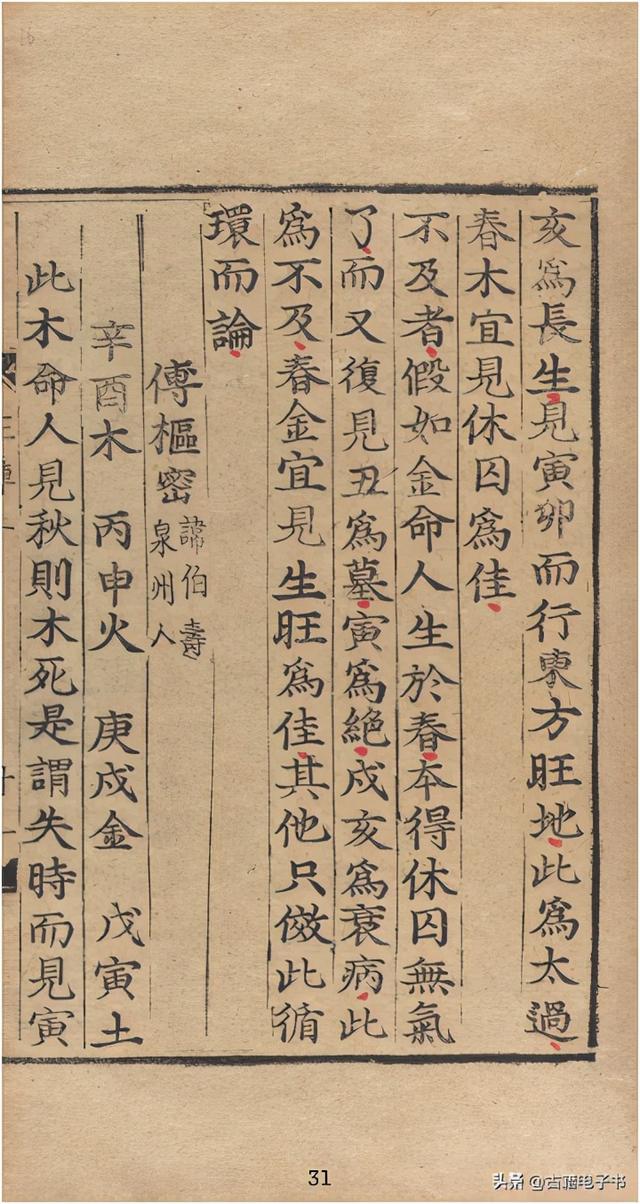 亥爲長生見寅卯而行東方旺地此爲太過
春木宜見休囚爲佳
不及者假如金命人生於春本得休囚無氣
了而又復見丑爲墓寅爲絕戍亥爲衰病此
爲不及春金宜見生旺爲佳其他只倣此循
環而論
傅樞密 諱伯壽
泉州人
辛酉木 丙申火 庚戍金 戊寅土
此木命人見秋則木死是謂失時而見寅
31
头条 @古籍电子书